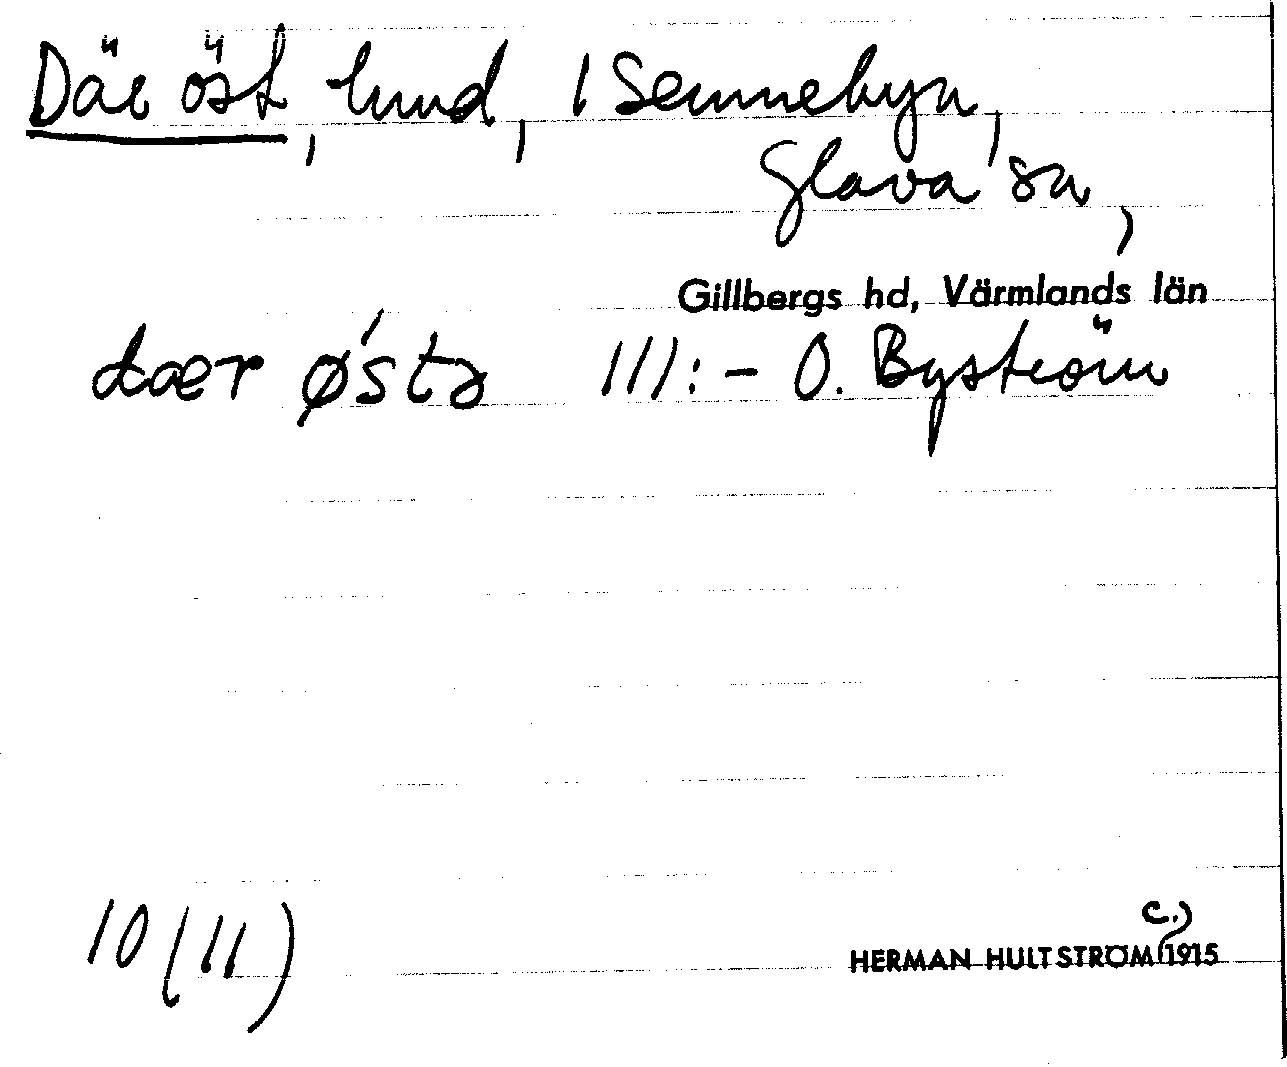 Där öst, lund, 1 Sennebyn,
Glava sn,
Gillbergs hd, Värmlands län
dær ǿstə III: - O. Byström
10 (11)
c.)
HERMAN HULTSTRÖM 1915